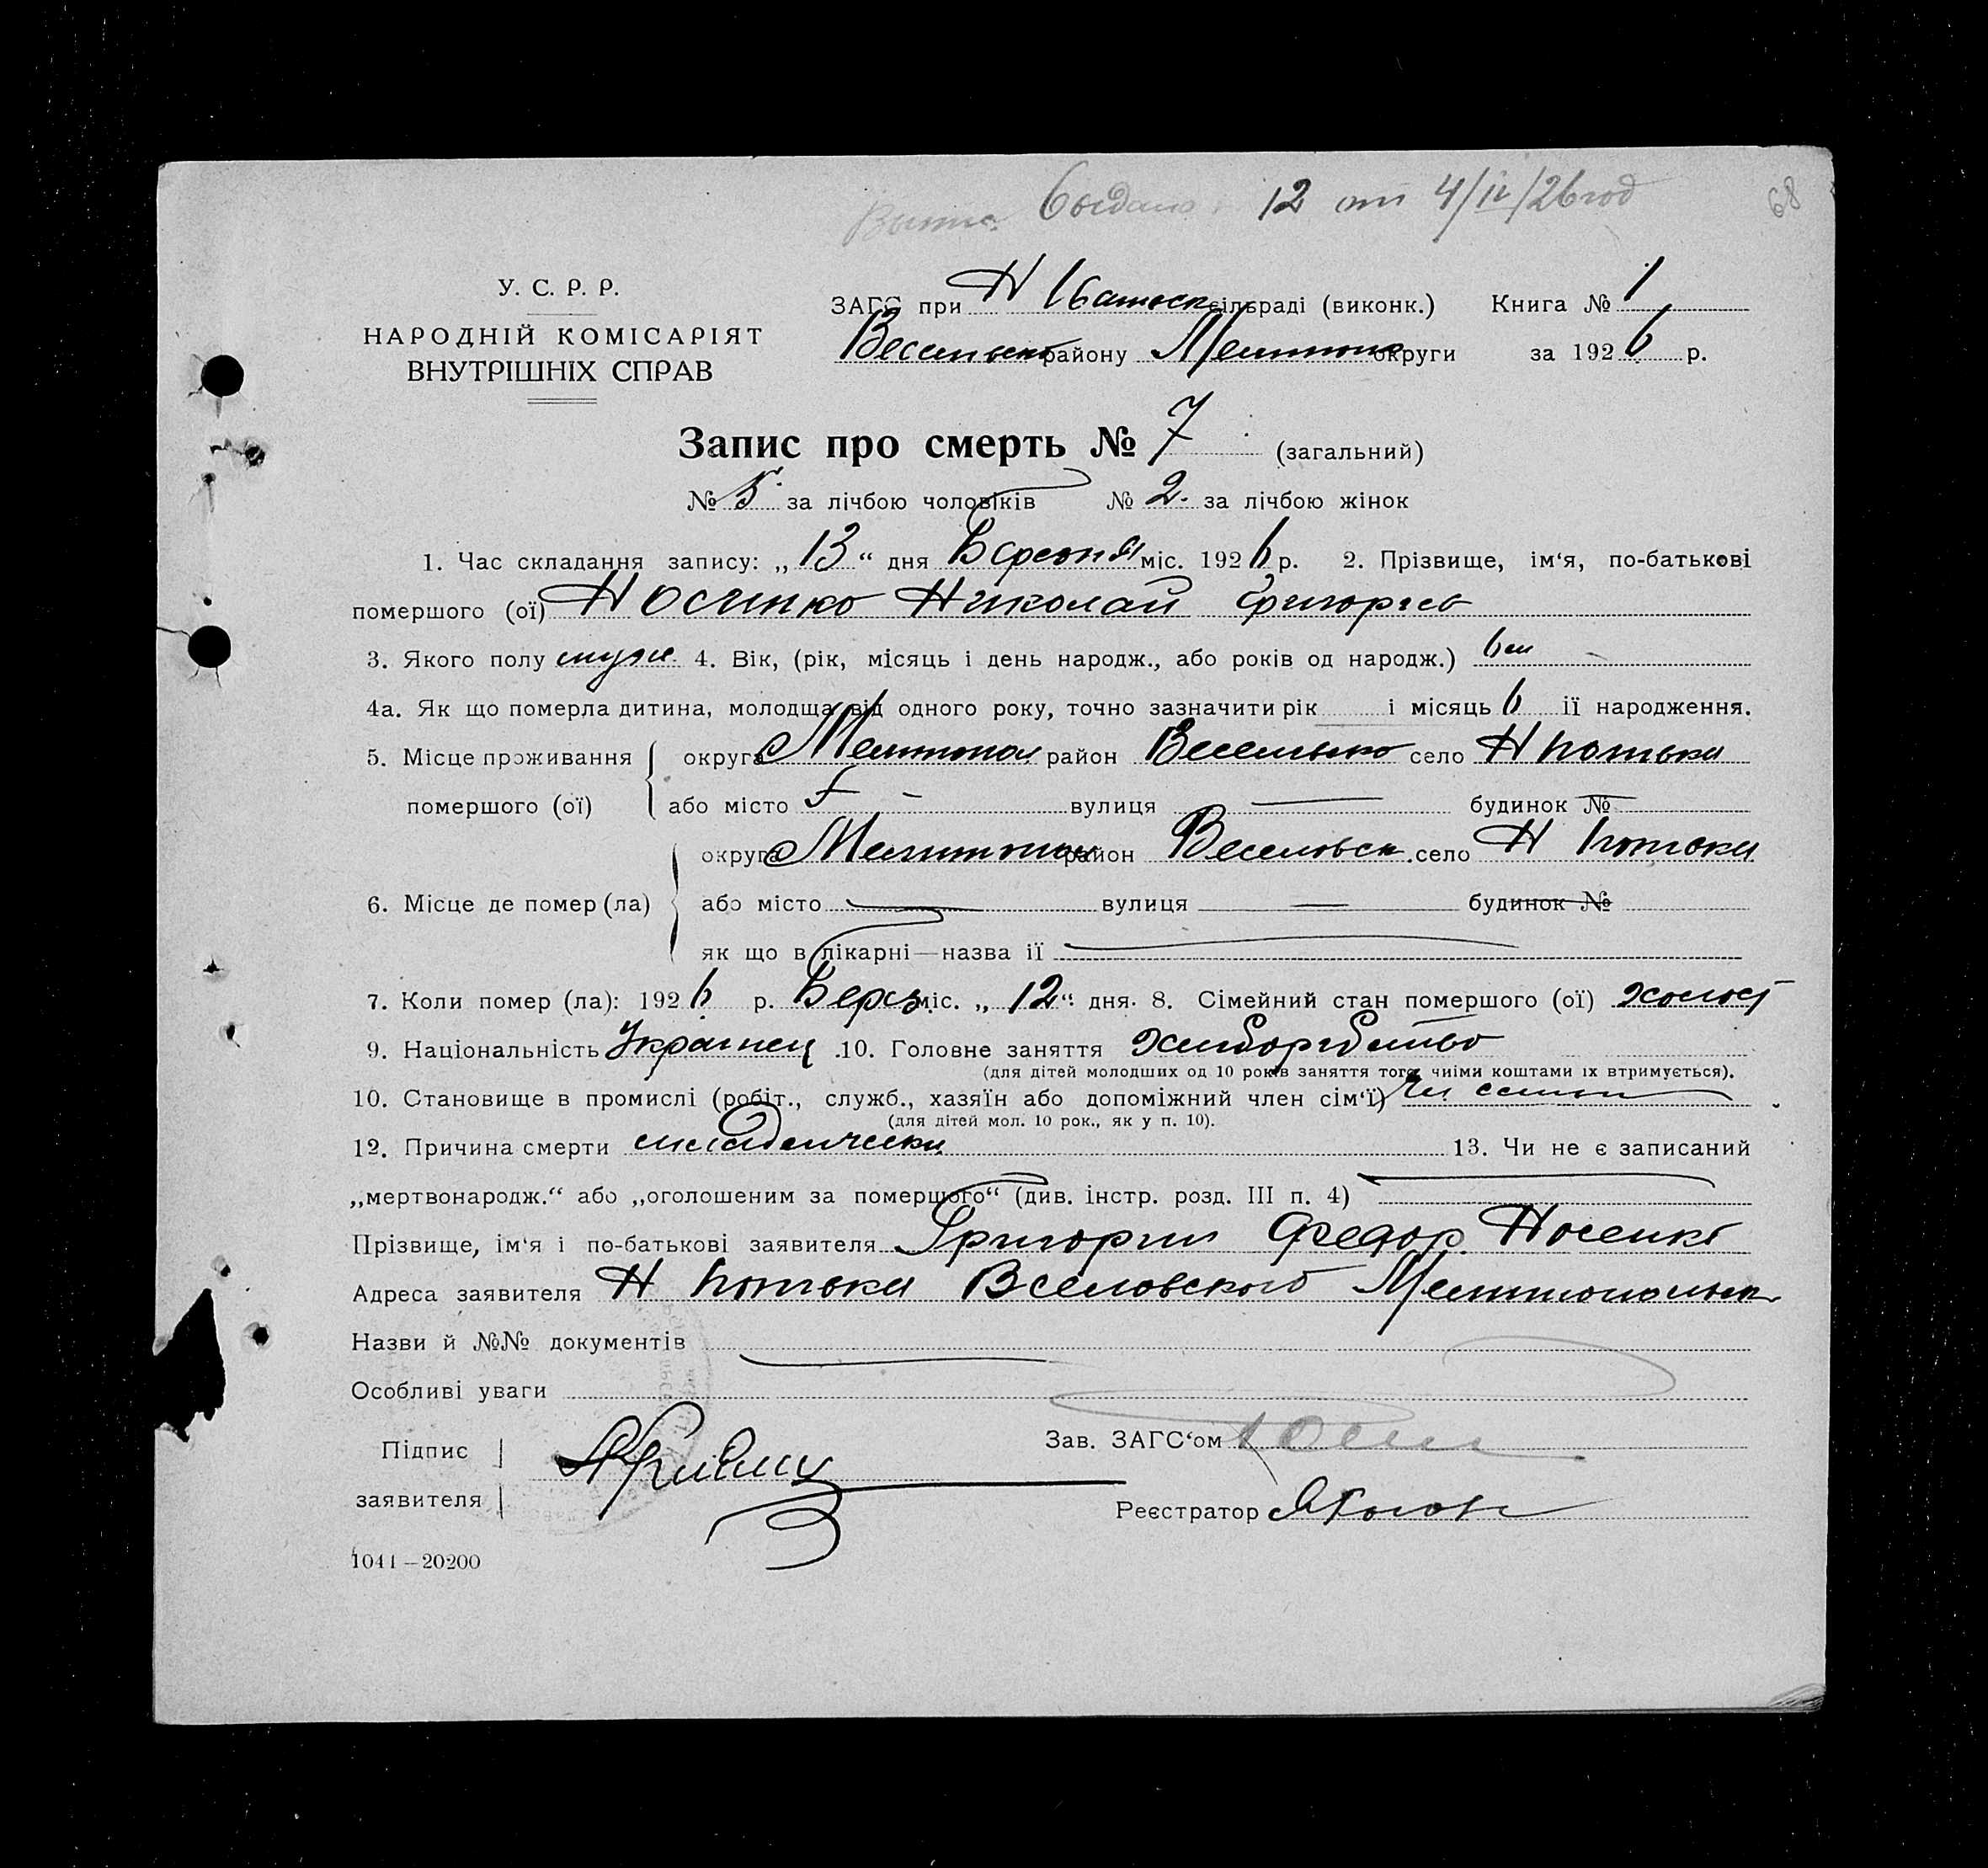 выдано 12 от 4/IV/26 год
68
У. С. Р. Р.
НАРОДНІЙ КОМІСАРІЯТ
ВНУТРІШНІХ СПРАВ
ЗАГС при Н сільраді (виконк.) Книга № 1
району округи за 1926 р.
Запис про смерть № 7 (загальний)
№ 5 за лічбою чоловіків № 2 за лічбою жінок
1. Час складання запису: „13“ дня міс. 1926 р. 2. Прізвище, ім‘я, по-батькові
помершого (ої) Носенко Николай Григорьев
3. Якого полу муж. 4. Вік, (рік, місяць і день народж., або років од народж.) 6 м
4а. Як що померла дитина, молодща від одного року, точно зазначити рік і місяць 6 її народження.
5. Місце проживання округа Мелитопол район село Н
помершого (ої) або місто — вулиця — будинок №
округа Мелитопол район Веселовск. село Н
6. Місце де помер (ла) або місто — вулиця — будинок №
як що в лікарні—назва її —
7. Коли помер (ла): 1926 р. міс. „12“ дня. 8. Сімейний стан помершого (ої) холост
9. Національність Украинец .10. Головне заняття
(для дітей молодших од 10 років заняття того, чиїми коштами їх втримується).
10. Становище в промислі (робіт., служб., хазяїн або допоміжний член сім‘ї)
(для дітей мол. 10 рок., як у п. 10).
12. Причина смерти младенческа 13. Чи не є записаний
„мертвонародж.“ або „оголошеним за помершого“ (див. інстр. розд. III п. 4) —
Прізвище, ім‘я і по-батькові заявителя Григорий Федор. Носенко
Адреса заявителя Н Веселовского Мелитопольск
Назви й №№ документів —
Особливі уваги
Підпис
заявителя
Зав. ЗАГС‘ом
Реєстратор
1041—20200